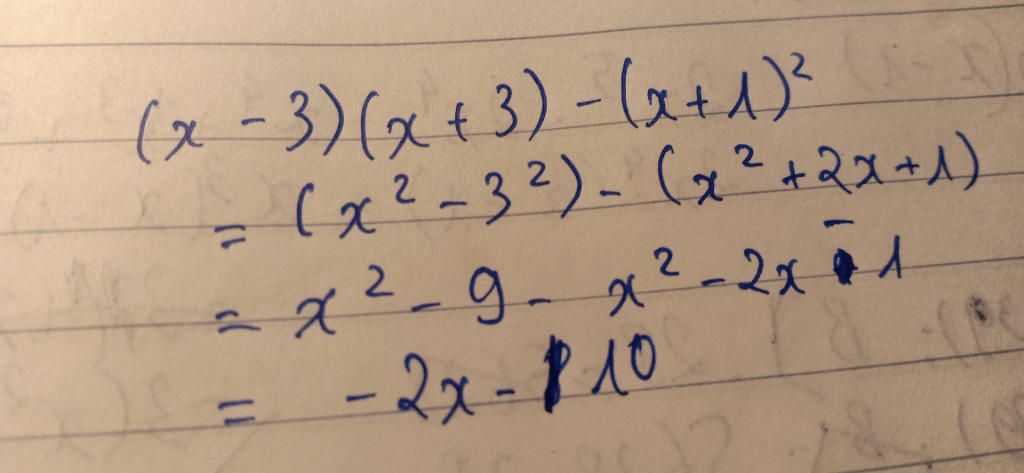 (x - 3)(x + 3) - (x + 1)²
= (x² - 3²) - (x² + 2x + 1)
= x² - 9 - x² - 2x - 1
= - 2x - 10